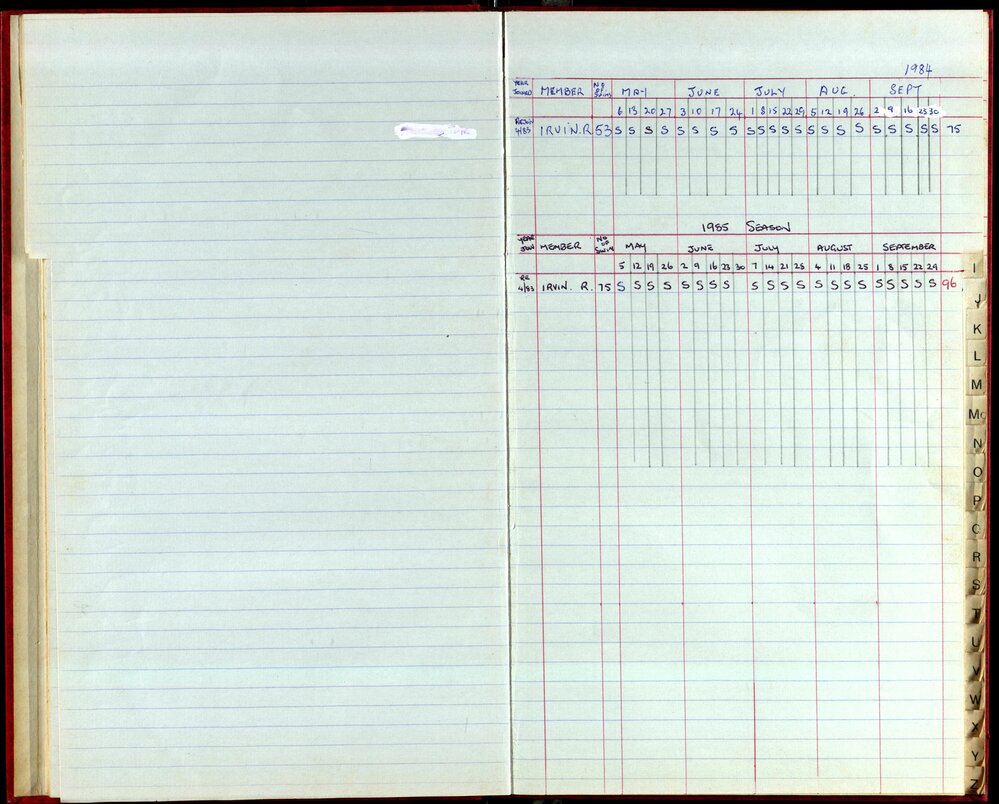 1984
YEAR JOINED MEMBER NO OF SWIMS MAY JUNE JULY AUG. SEPT
6 13 20 27 3 10 17 24 1 8 15 22 29 5 12 19 26 2 9 16 23 30
REJOIN 4/83 IRVIN. R 53 S S S S S S S S S S S S S S S S S S S S S S 75
1985 SEASON
YEAR JOIN MEMBER NO OF SWIM MAY JUNE JULY AUGUST SEPTEMBER
5 12 19 26 2 9 16 23 30 7 14 21 28 4 11 18 25 1 8 15 22 29
RE 4/83 IRVIN. R. 75 S S S S S S S S S S S S S S S S S S S S S 96
I
J
K
L
M
Mc
N
O
P
R
S
T
U
V
W
X
Y
Z